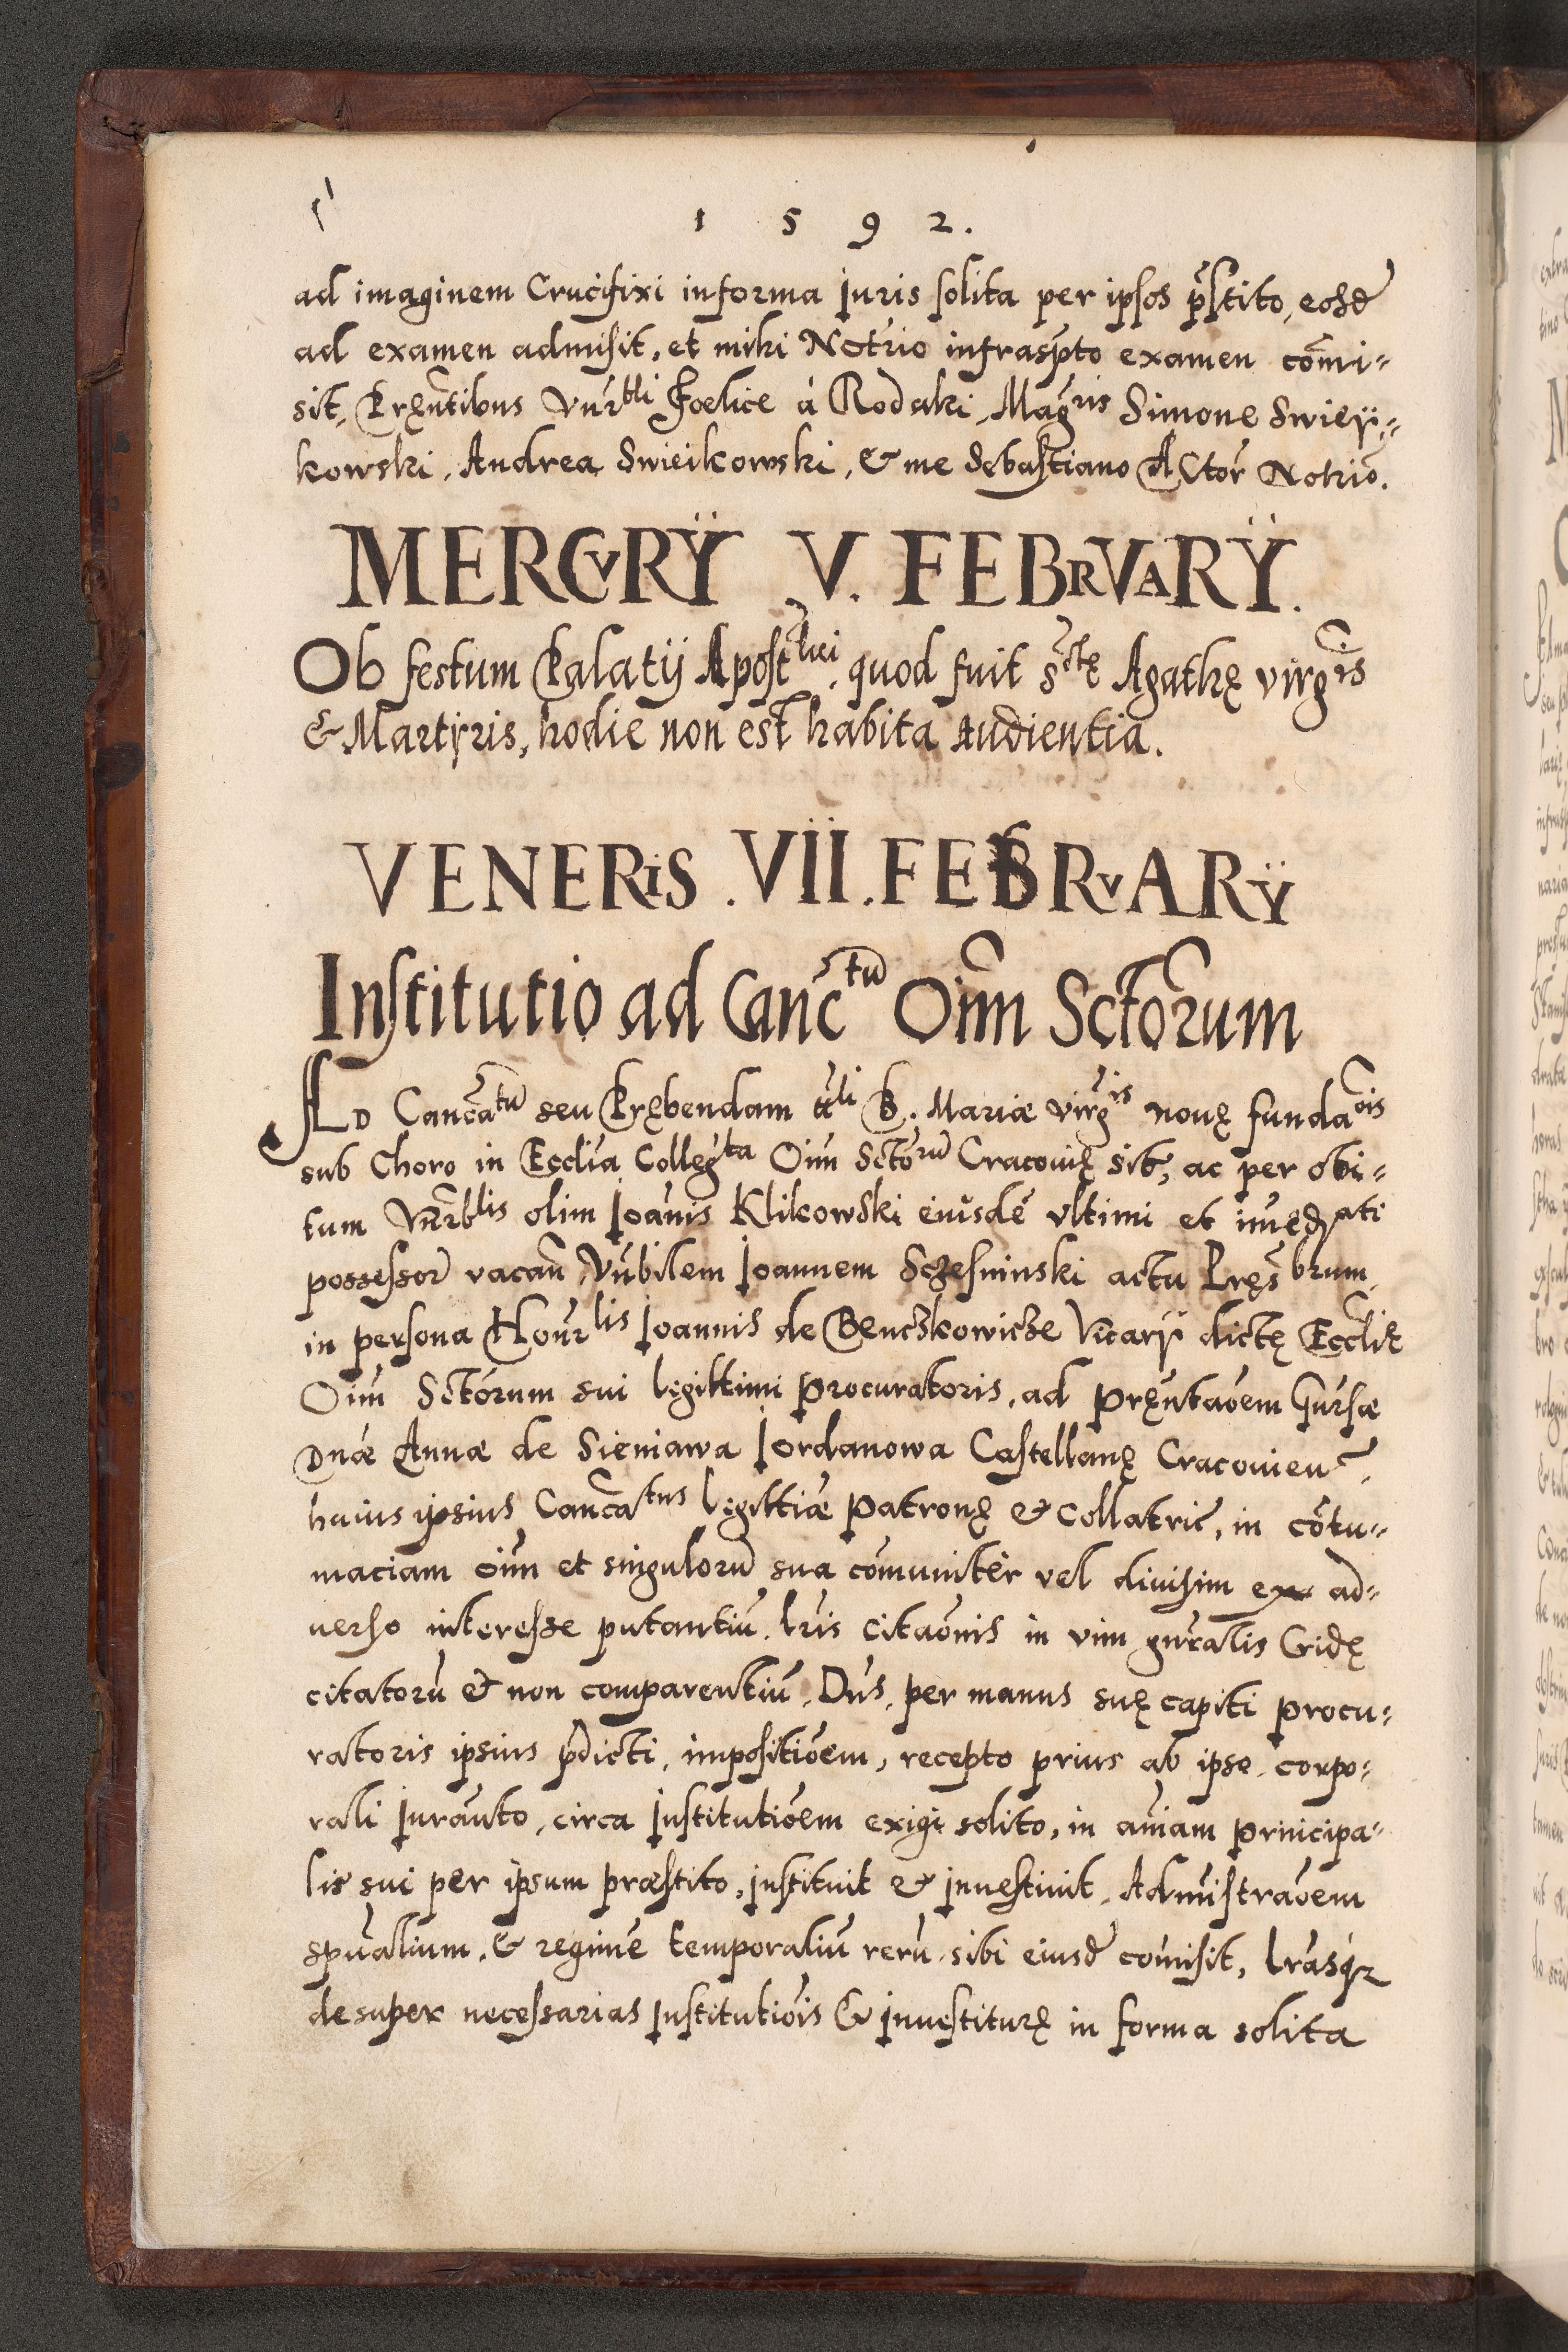 1 5 9 2.
ad imaginem Crucifixi in forma Juris solita per ipsos p̃stito, eosd̃
ad examen admisit, et mihi Notrio infraspto examen cõmi-
sit, Pręntibus Vnr̃bli Foelice à Rodaki, Mag̃ris Simone Swieÿ-
kowski, Andrea Swieikowski, & me Sebastiano Actor̃ Notrio.
MERCVRŸ V. FEBRVARŸ.
Ob festum Palatij Apostlici, quod fuit Sctę Agathę virg̃is
& Martyris, hodie non est habita audientia.
VENERIS . VII . FEBRVARŸ
Institutio ad Canc̃tũ Oim̃ Sctorum
AD Canc̃atũ seu Prębendam tt̃li B. Mariæ virg̃is nouę fundaõis
sub Choro in Ecclia Colleg̃ta Oim̃ Sctorũ Cracouię sit, ac per obi-
tum Vnr̃blis olim Joãnis Klikowski eiusdẽ vltimi et im̃ędyati
possessor̃ vacañ, Vnr̃bilem Joannem Sczesninski actu Pręsbrum,
in persona Honr̃lis Joannis de Benczkowicze Vicarÿ dictę Eccl̃ię
Oim̃ Sctórum sui legittimi procuratoris, ad pręntaõem Gñrsæ
Dnæ Annæ de Sieniawa Jordanowa Castellanę Cracouien̄,
huius ipsius Canc̃atus legittiæ patronę & Collatric̃, in cõtu-
maciam oim̃ et singulorũ sua cõmuniter vel diuisim ex ad-
uerso interesse putantiũ, lr̃is Citaõnis in vim gnr̃alis Cridę
citatorũ & non comparentiũ, Dñs, per manus suę capiti procu-
ratoris ipsius p̃dicti, impositiõem, recepto prius ab ipso corpo-
rali Jurãnto, circa Institutiõem exigi solito, in ãniam principa-
lis sui per ipsum præstito, instituit & inuestiuit, Adm̃istraõem
spũalium, & regimẽ temporaliũ rerũ sibi eiusd̃ com̃isit, lr̃asq₃
desuper necessarias Institutiõis & inuestiturę in forma solita